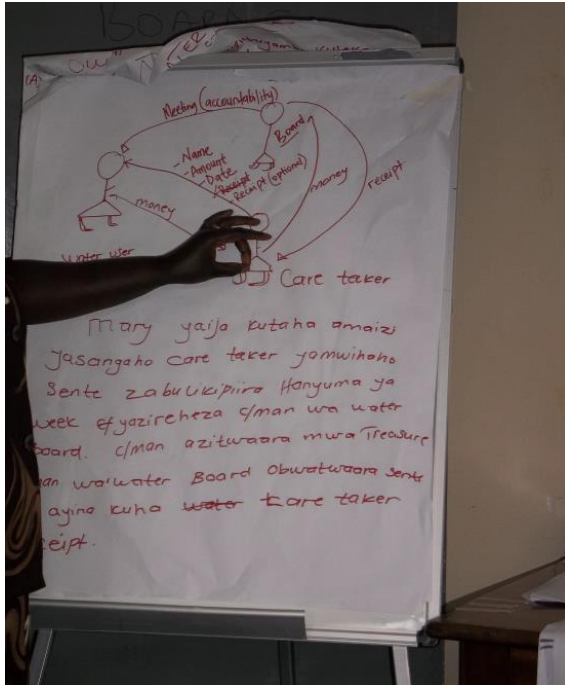 BOARD
(A)
Meeting (accountability)
Board
-Name
-Amount
-Date
Receipt
Receipt (optional)
money
receipt
money
water user
Care taker
Mary yaija kutaha amaizi
Yasangaho care taker yamwihaho
Sente zabulikipiira Hanyuma ya
week efyazireheza c/man wa water
board. c/man azitwaara mwa Treasure
man wa'water Board obwatwaara sente
ayina kuha water care taker
ceipt.